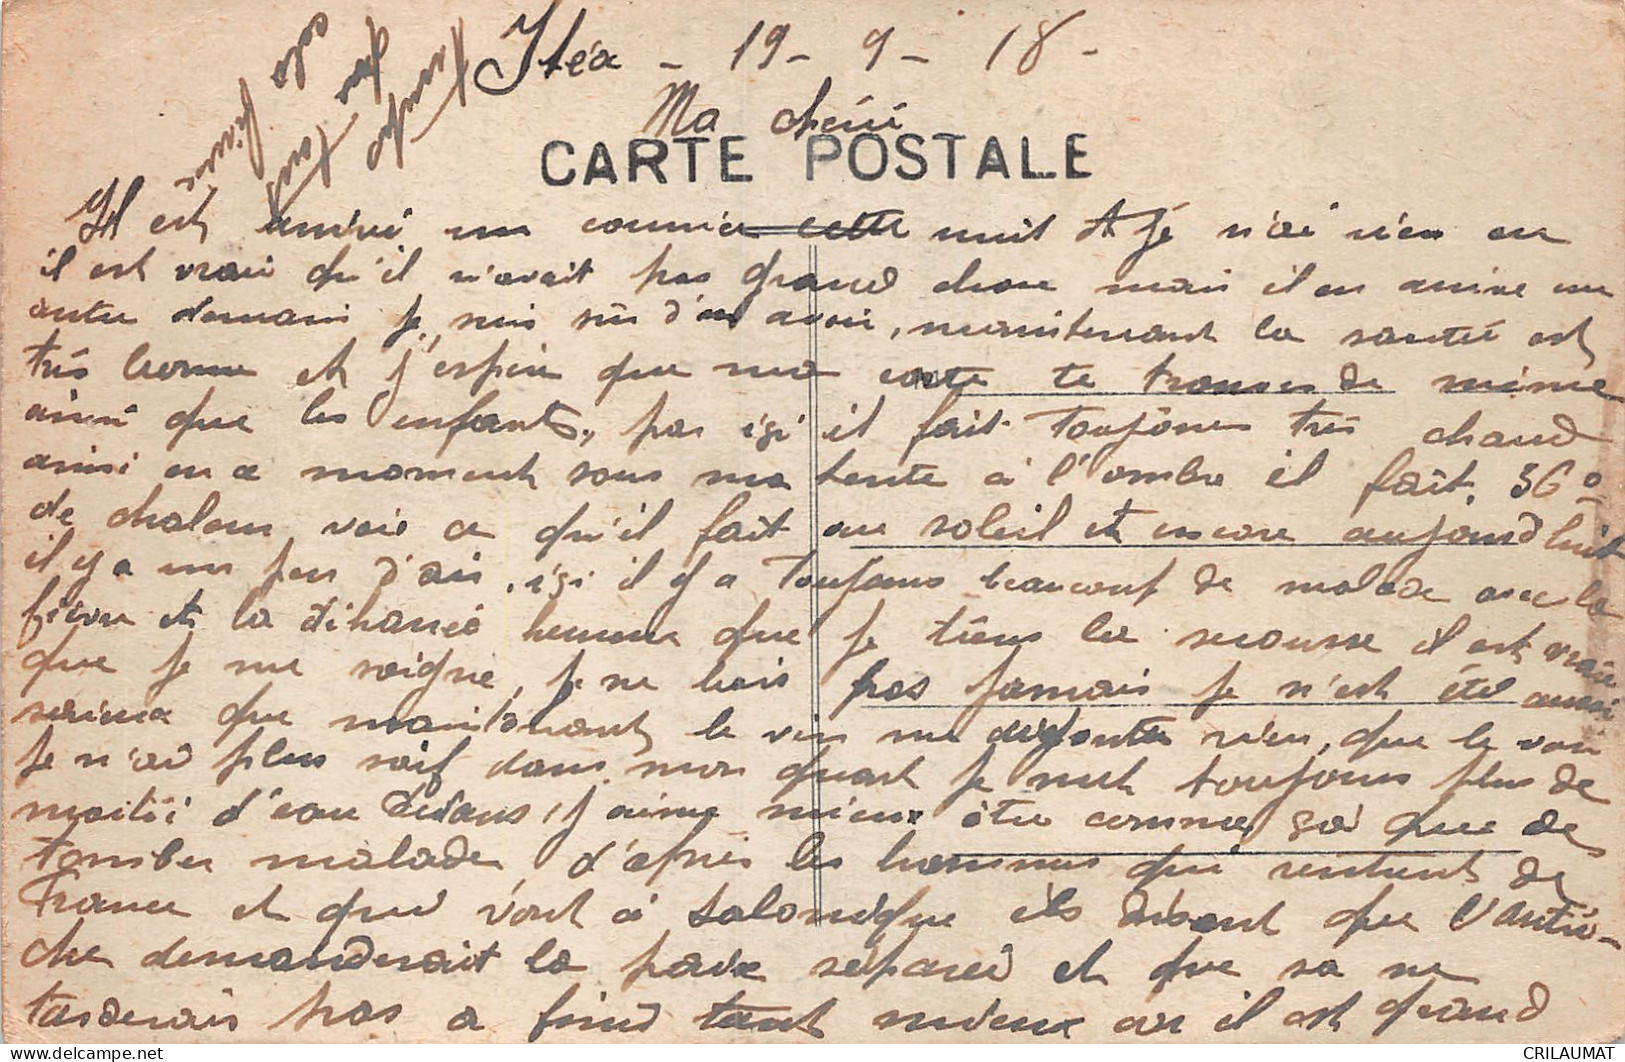 Itéa - 19 - 9 - 18 -
Ma chérie
CARTE POSTALE
Il est arrivé un courrier cette nuit et je n'ai rien eu
il est vrai qu'il n'avait pas grand chose mais il en arrive un
autre demain je suis sûr d'en avoir, maintenant la santé est
très bonne et j'espère que ma carte te trouvera de même
ainsi que les enfants, par içi il fait toujours très chaud
ainsi en ce moment sous ma tente à l'ombre il fait 36°
de chaleur voie ce qu'il fait au soleil et encore aujourd huit
il y a un peu d'air, içi il y a toujours beaucoup de malade avec la
fièvre et la diharée heureux que je tiens la secousse il est vrai
que je me soigne, je ne bois pas jamais je n'est été aussi
serieux que maintenant le vin me dégoutte rien que le voir
je n'ai plus soif dans mon quart je met toujours plus de
moitié d'eau dedans, j'aime mieux être comme ça que de
tomber malade, d'après les hommes qui rentrent de
France et qui vont à Salonique ils disent que l'Autri-
che demanderait la paix séparée et que sa ne
tarderais pas a finir tant mieux car il est grand
temps que
tout
cela finisse